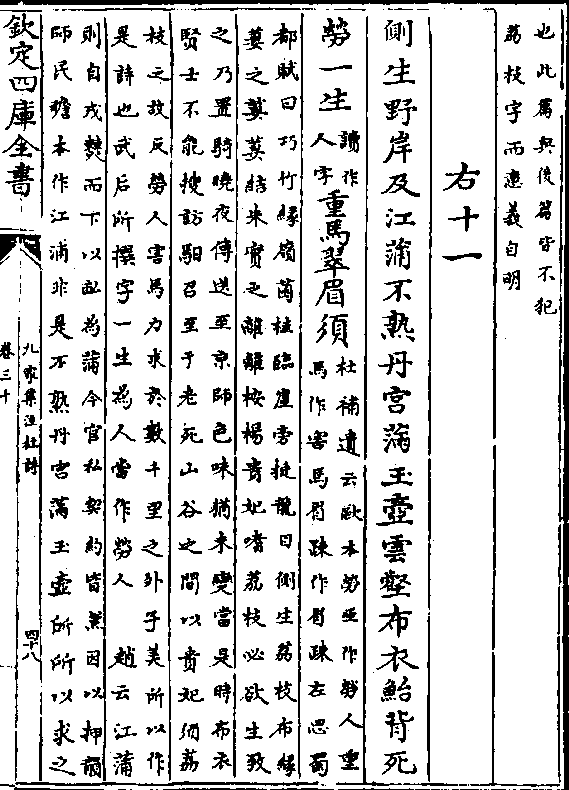 也此篇與後篇皆不犯
荔枝字而意義自明
右十一
側生野岸及江蒲不熟丹宮滿玉壺雲壑布衣鮐背死
勞一生
讀作
人字
重馬翠眉須
杜補遺云歐本勞生作勞人重
馬作害馬眉踈作眉踈左思蜀
都賦曰邛竹縁嶺菌桂臨崖旁挺龍目側生荔枝布緑
葉之萋萋結朱實之離離按楊貴妃嗜荔枝必欲生致
之乃置騎曉夜傳送至京師色味猶未變當是時布衣
賢士不能搜訪馹召至于老死山谷之間以貴妃須荔
枝之故反勞人害馬力求於數千里之外子美所以作
是詩也武后所撰字一生為人當作勞人　趙云江蒲
則自戎𤏡而下以缶為蒲今官私契約皆然因以押韻
師民瞻本作江浦非是不熟丹宮滿玉壺所所以求之
欽定四庫全書
九家集注杜詩
卷三十
四十八